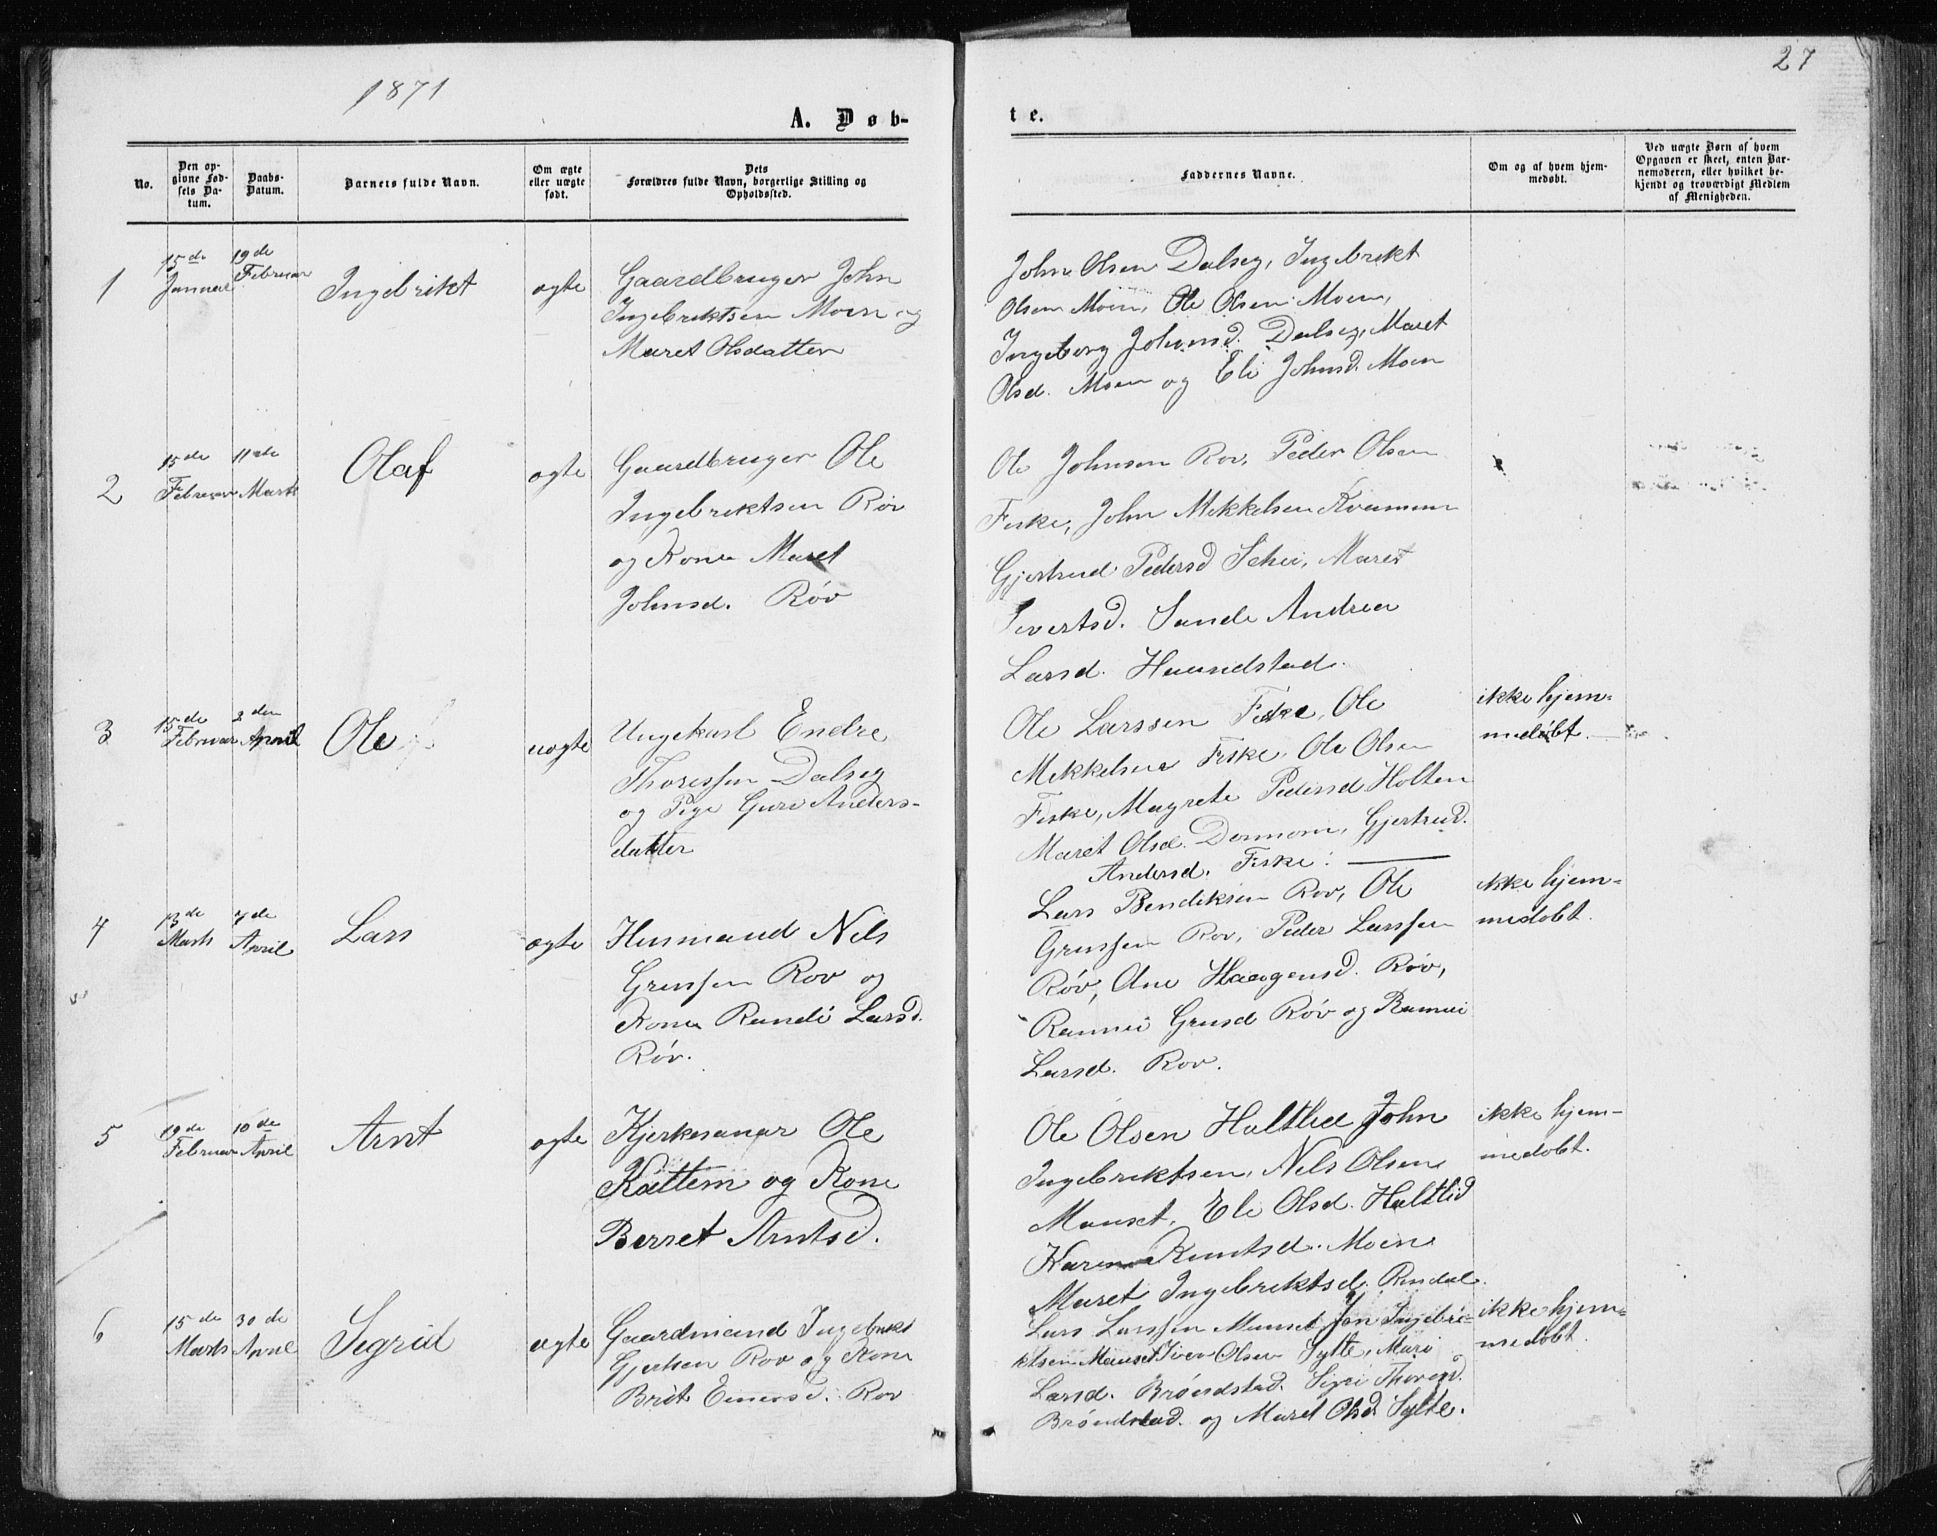 1871
27
A. Døb-
te.
No.
Den op-
givne Fød-
sels Da-
tum.
Daabs-
Datum.
Barnets fulde Navn.
Om ægte
eller uægte
født.
Dets
Forældres fulde Navn, borgerlige Stilling og
Opholdssted.
Faddernes Navne.
Om og af hvem hjem-
medøbt.
Ved uægte Børn af hvem
Opgaven er skeet, enten Bar-
nemoderen, eller hvilket be-
kjendt og troværdigt Medlem
af Menigheden.
1
15de
Januar
19de
Februar
Ingebrikt
ægte
Gaardbruger John
Ingebriktsen Moen og
Maret Olsdatter
John Olsen Dalseg, Ingebrikt
Olsen Moen, Ole Olsen Moen,
Ingeborg Johansd. Dalseg, Maret
Olsd. Moen og Eli Johnsd. Moen
2
15de
Februar
11de
Marts
Olaf
ægte
Gaardbruger Ole
Ingebriktsen Røv
og Kone Maret
Johnsd. Røv
Ole Johnsen Rov, Peder Olsen
Fiske, John Mikkelsen Kvammen
Gjertrud Pedersd Schei, Maret
Sivertsd. Sande Andrea
Larsd. Haandstad.
3
15de
Februar
3den
April
Ole
uægte
Ungekarl Endre
Thoressen Dalseg
og Pige Guri Anders-
datter
Ole Larssen Fiske, Ole
Mikkelsen Fiske, Ole Olsen
Fiske, Magrete Pedersd Holten
Maret Olsd. Donnem, Gjertrud.
Andersd. Fiske.
ikke hjem-
medøbt.
4
13de
Marts
7de
April
Lars
ægte
Husmand Nils
Grussen Rov og
Kone Randi Larsd.
Røv.
Lars Bendiksen Rov, Ole
Grussen Rov, Peder Larssen
Røv, Ane Haagensd. Røv,
Rannei Grusd Røv og Rannei
Larsd. Rov.
ikke hjem-
medøbt.
5
19de
Februar
10de
April
Arnt
ægte
Kjerkesanar Ole
Kattem og Kone
Berret Arntsd.
Ole Olsen Haltlid John
Ingebriktsen, Nils Olsen
Mauset, Eli Olsd. Haltlid
Karen Knutsd. Moen
Maret Ingebriktsd. Rindal.
ikke hjem-
medøbt.
6
15de
Marts
30de
April
Segrid
ægte
Gaardmand Ingebrikt
Gjertsen Rov og Kone
Brit Einersd. Rov
Lars Larssen Mauset Jon Ingebri-
ktsen Mauset Iver Olsen Sylte, Mari
Larsd. Brøndstad. Sigri Thoresd.
Brøndstad. og Maret Olsd. Sylte.
ikke hjem-
medøbt.